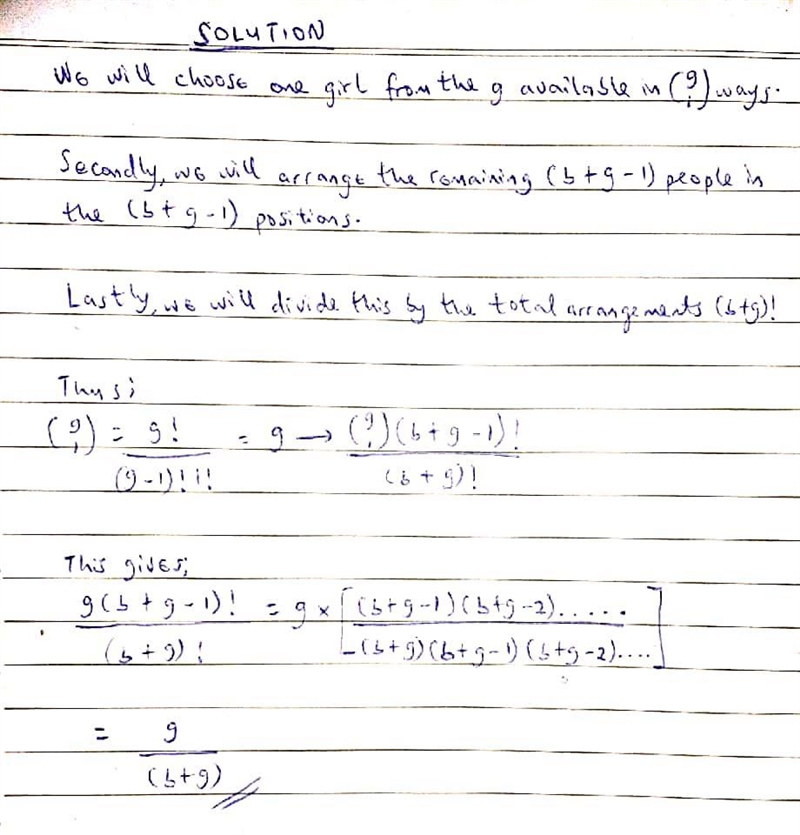 SOLUTION
We will choose one girl from the g available in (g 1) ways.
Secondly, we will arrange the remaining (b+g-1) people in
the (b+g-1) positions.
Lastly, we will divide this by the total arrangements (b+g)!
Thus;
(g 1) = g! / (g-1)!1! = g → (g 1)(b+g-1)! / (b+g)!
This gives;
g(b+g-1)! / (b+g)! = g × [(b+g-1)(b+g-2)..... / (b+g)(b+g-1)(b+g-2)....]
= g / (b+g)